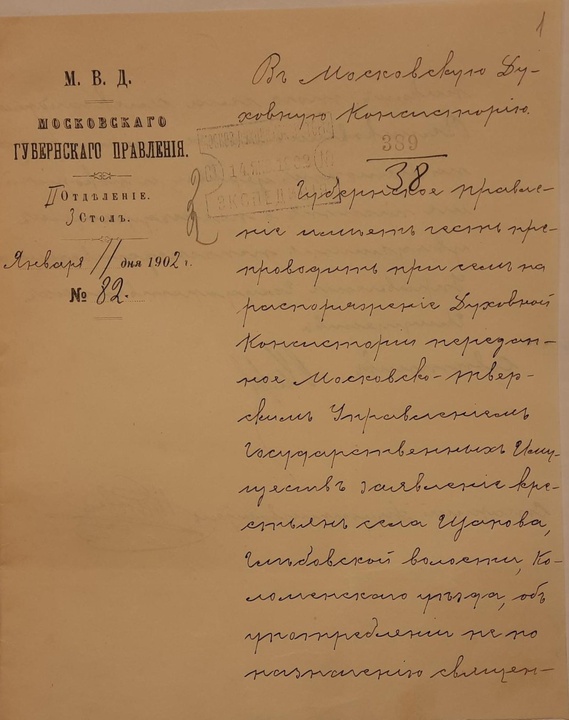 1
М. В. Д.
МОСКОВСКАГО
ГУБЕРНСКАГО ПРАВЛЕНІЯ.
II ОТДѢЛЕНІЕ.
3 СТОЛЪ.
Января 11 дня 1902 г.
№ 82.
Въ Московскую Ду-
ховную Консисторію.
389
38
Губернское правле-
ніе имѣетъ честь пре-
проводить при семъ на
распоряженіе Духовной
Консисторіи передан-
ное Московско-Твер-
скимъ Управленіемъ
Государственныхъ Иму-
ществъ заявленіе кре-
стьянъ села
волости, Ко-
ломенскаго уѣзда, объ
употребленіи не по
назначенію священ-